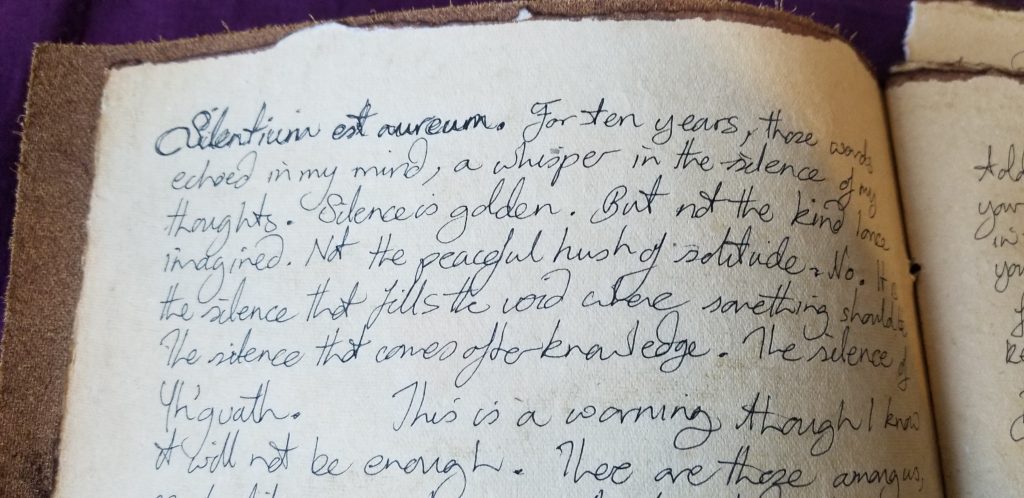 Silentium est aureum. For ten years, those words
echoed in my mind, a whisper in the silence of my
thoughts. Silence is golden. But not the kind I once
imagined. Not the peaceful hush of solitude. No. It is
the silence that fills the void where something should be.
The silence that comes after knowledge. The silence of
Yh'guath. This is a warning though I know
it will not be enough. There are those among us,
your
in